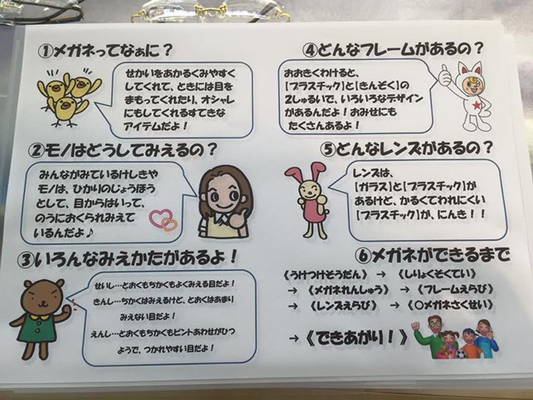 ①メガネってなぁに？
せかいをあかるくみやすく
してくれて、ときには目を
まもってくれたり、オシャレ
にもしてくれるすてきな
アイテムだよ！
②モノはどうしてみえるの？
みんながみているけしきや
モノは、ひかりのじょうほう
として、目からはいって、
のうにおくられみえて
いるんだよ♪
③いろんなみえかたがあるよ！
せいし…とおくもちかくもよくみえる目だよ！
きんし…ちかくはみえるけど、とおくはあまり
みえない目だよ！
えんし…とおくもちかくもピントあわせがひつ
ようで、つかれやすい目だよ！
④どんなフレームがあるの？
おおきくわけると、
【プラスチック】と【きんぞく】の
2しゅるいで、いろいろなデザイン
があるんだよ！おみせにも
たくさんあるよ！
⑤どんなレンズがあるの？
レンズは、
【ガラス】と【プラスチック】が
あるけど、かるくてわれにくい
【プラスチック】が、にんき！！
⑥メガネができるまで
《うけつけそうだん》 → 《しりょくそくてい》
→ 《メガネれんしゅう》 → 《フレームえらび》
→ 《レンズえらび》 → 《〇メガネさくせい》
→ 《できあがり！》